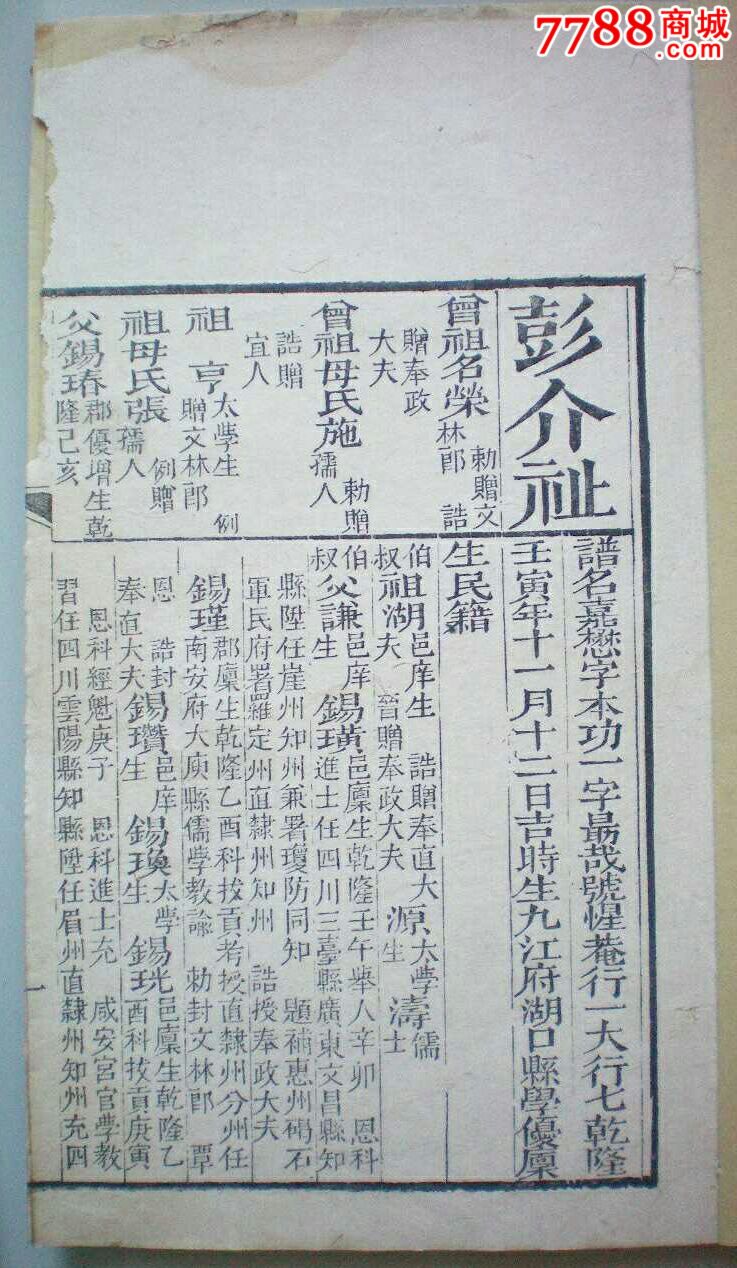 7788商城
.com
彭介祉
譜名嘉懋字本功一字最哉號惺菴行一大行七乾隆
壬寅年十一月十二日吉時生九江府湖口縣學優廩
生民籍
曾祖名榮 勅贈文林郎 誥
贈奉政大夫
曾祖母氏施 勅贈孺人
誥贈宜人
祖亨 太學生 例贈文林郎
祖母氏張 例贈孺人
父錫瑃 郡優增生乾隆己亥
伯叔祖湖 邑庠生 誥贈奉直大夫 晉贈奉政大夫 源 太學生 濤 儒士
伯叔父謙 邑庠生 錫璜 邑廩生乾隆壬午舉人辛卯 恩科進士任四川三臺縣廣東文昌縣知
縣陞任崖州知州兼署瓊防同知 題補惠州碣石
軍民府署羅定州直隸州知州 誥授奉政大夫
錫瑾 郡廩生乾隆乙酉科拔貢考授直隸州分州任南安府大庾縣儒學教諭 勅封文林郎 覃
恩 誥封奉直大夫 錫瓚 邑庠生 錫瑍 太學生 錫珖 邑廩生乾隆乙酉科拔貢庚寅
恩科經魁庚子 恩科進士充 咸安宮官學教
習任四川雲陽縣知縣陞任眉州直隸州知州充四
一